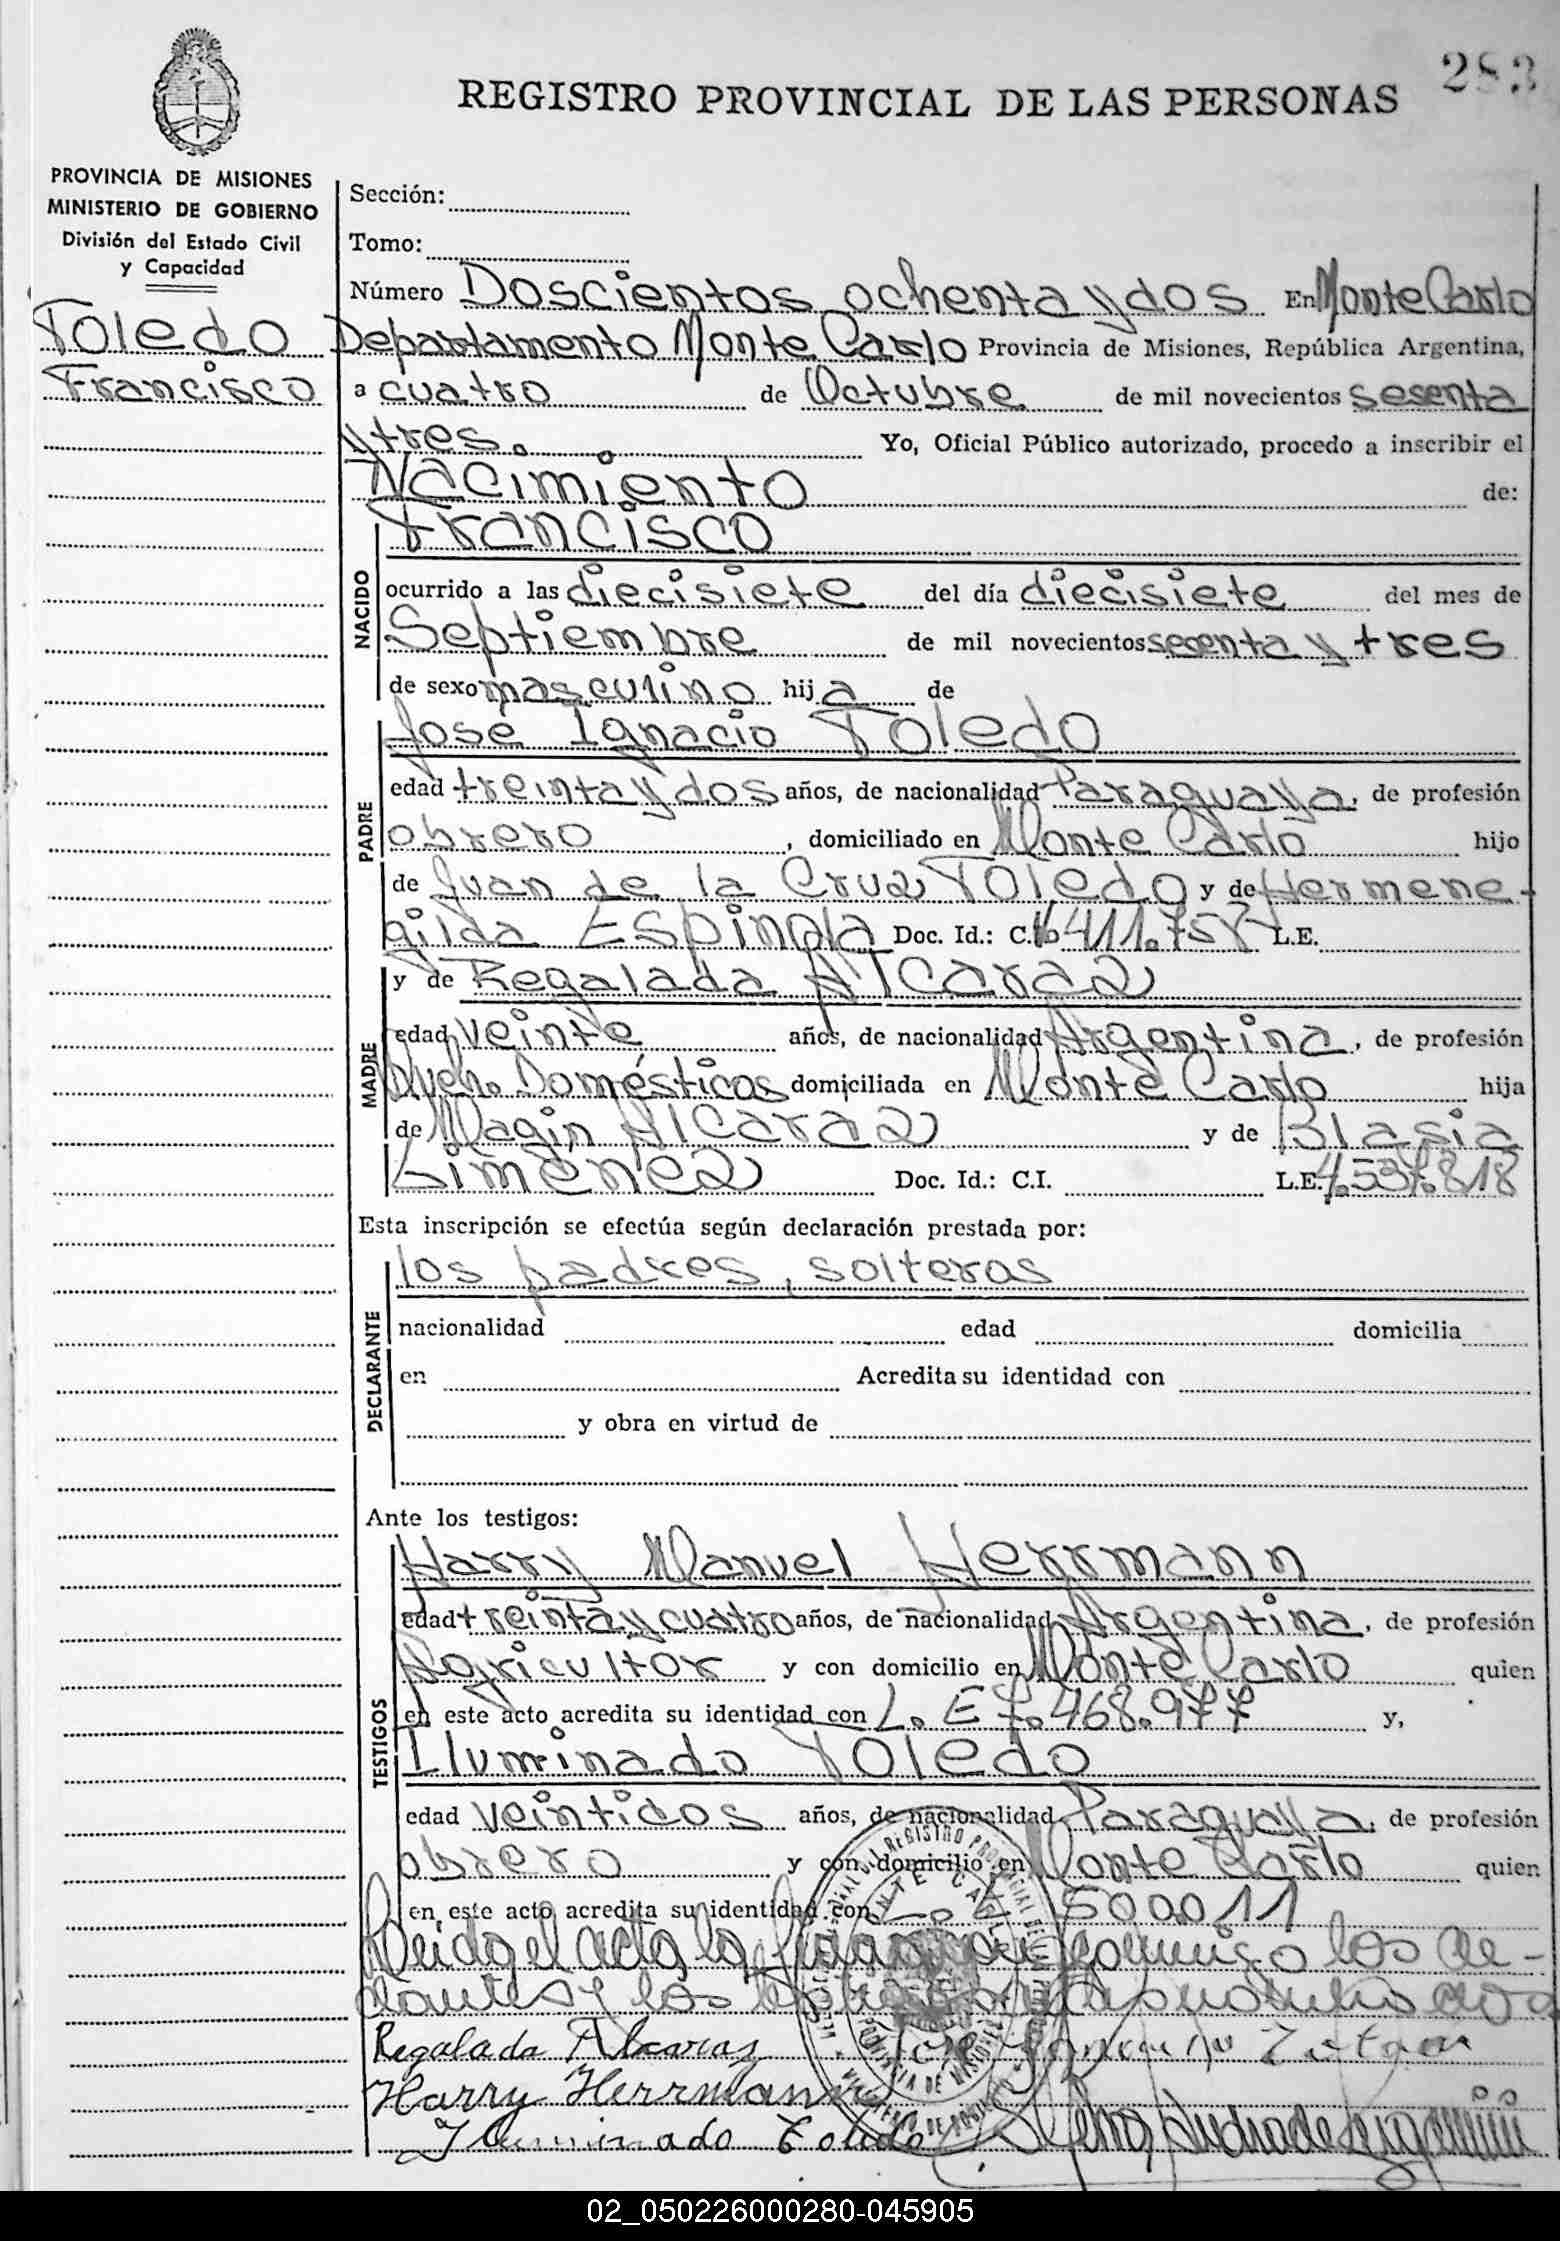 283
REGISTRO PROVINCIAL DE LAS PERSONAS
PROVINCIA DE MISIONES
MINISTERIO DE GOBIERNO
División del Estado Civil
y Capacidad
Toledo
Francisco
Sección:
Tomo:
Número Doscientos ochenta y dos En Monte Carlo
Departamento Monte Carlo Provincia de Misiones, República Argentina,
a cuatro de Octubre de mil novecientos sesenta
y tres. Yo, Oficial Público autorizado, procedo a inscribir el
Nacimiento de:
NACIDO
Francisco
ocurrido a las diecisiete del día diecisiete del mes de
Septiembre de mil novecientos secenta y tres
de sexo masculino hija de
PADRE
José Ignacio Toledo
edad treinta y dos años, de nacionalidad Paraguaya, de profesión
obrero, domiciliado en Monte Carlo hijo
de Juan de la Cruz Toledo y de Hermene-
gilda Espinola Doc. Id.: C.I. 411.757 L.E.
y de Regalada Alcaraz
MADRE
edad veinte años, de nacionalidad Argentina, de profesión
Queh. Domésticos domiciliada en Monte Carlo hija
de Magin Alcaraz y de Blasia
Limenez Doc. Id.: C.I. L.E. 4.537.818
Esta inscripción se efectúa según declaración prestada por:
DECLARANTE
los padres, solteros
nacionalidad edad domicilia
en Acredita su identidad con
y obra en virtud de
Ante los testigos:
TESTIGOS
Harry Manuel Herrmann
edad treinta y cuatro años, de nacionalidad Argentina, de profesión
Agricultor y con domicilio en Monte Carlo quien
en este acto acredita su identidad con L. E 7.468.977 y,
Iluminado Toledo
edad veintidos años, de nacionalidad Paraguaya, de profesión
obrero y con domicilio en Monte Carlo quien
en este acto acredita su identidad con 500011
Leida el acta la conmigo los de-
clarantes y los
Regalada Alcaraz
Harry Herrmann
Iluminado Toledo
02_050226000280-045905